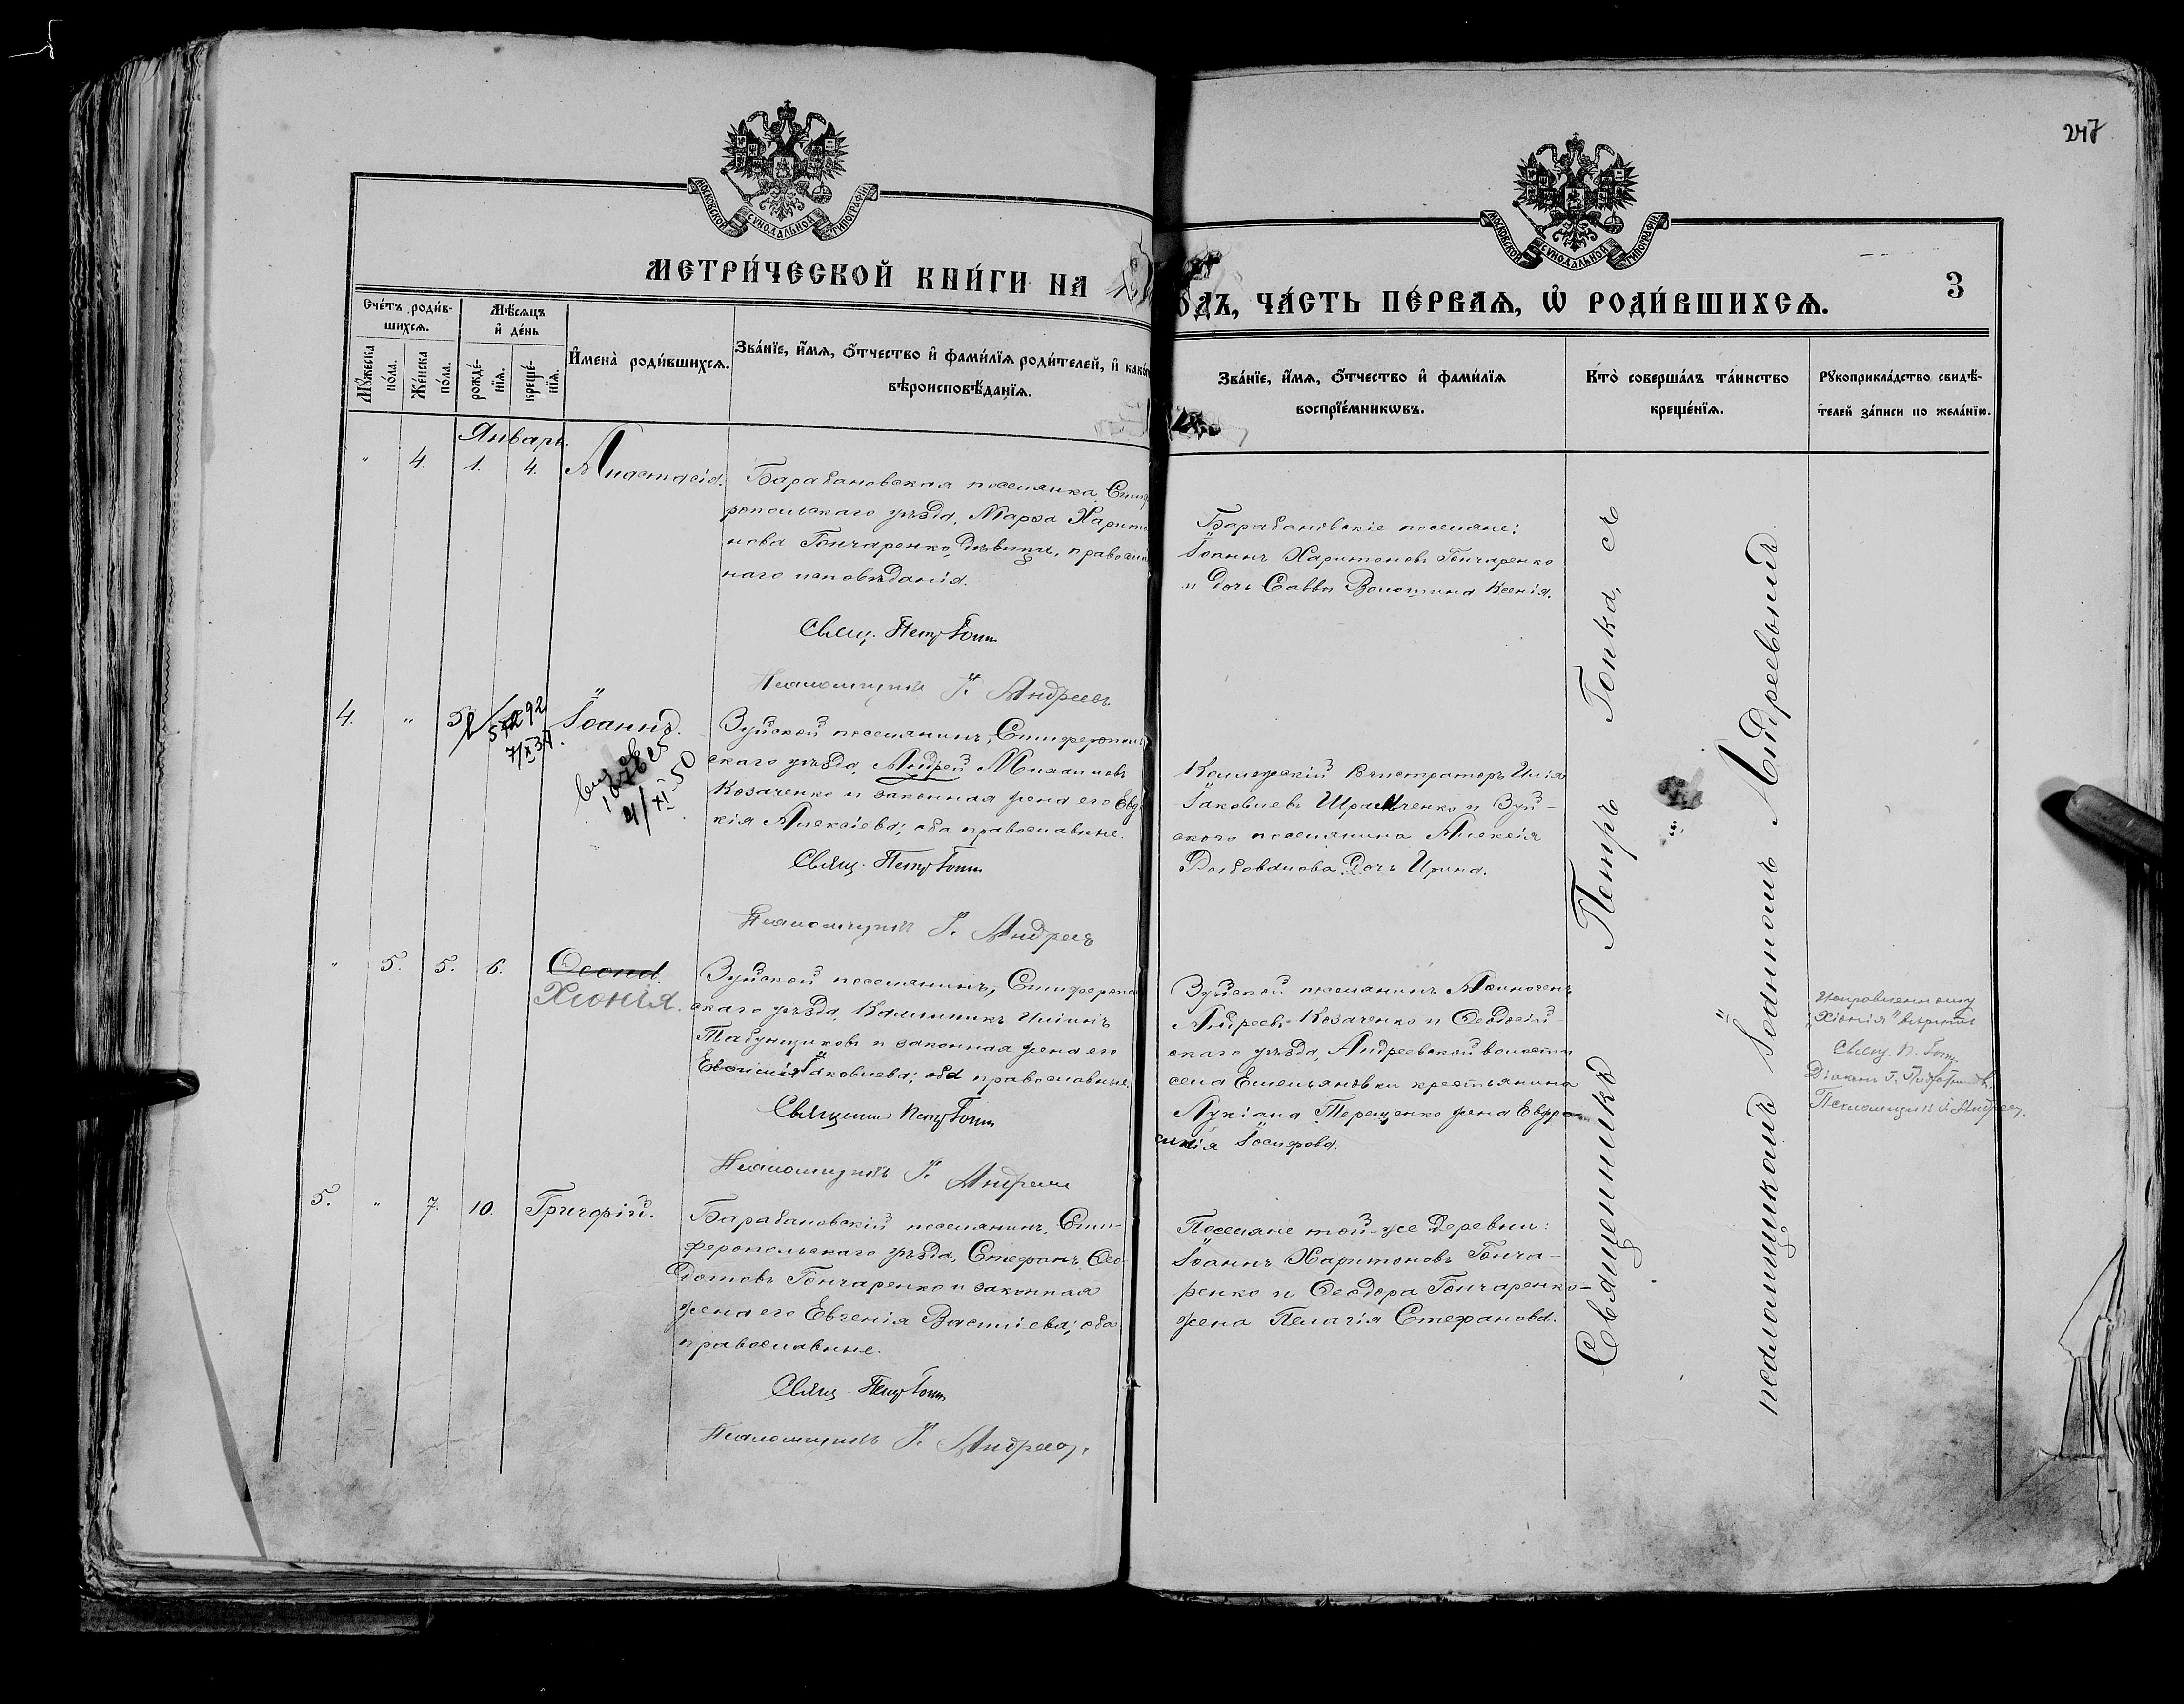 247
МОСКОВСКОЙ СУНОДАЛЬНОЙ ТИПОГРАФІИ
МОСКОВСКОЙ СУНОДАЛЬНОЙ ТИПОГРАФІИ
МЕТРИ́ЧЕСКОЙ КНИ́ГИ НА
ОДЪ, ЧА́СТЬ ПЕ́РВАѦ, Ѡ҆ РОДИ́ВШИХСѦ.
3
Сче́тъ роди́в-
шихсѧ.
Мꙋ́жеска
по́ла.
Же́нска
по́ла.
Мѣ́сѧцъ
и҆ де́нь
рожде́-
нїѧ.
креще́-
нїѧ.
И҆мена̀ роди́вшихсѧ.
Зва́нїе, и҆́мѧ, ѻ҆́тчество и҆ фами́лїѧ роди́телей, и҆ како́г
вѣроисповѣ́данїѧ.
Зва́нїе, и҆́мѧ, ѻ҆́тчество и҆ фами́лїѧ
воспрїе́мникωвъ.
Кто̀ соверша́лъ та́инство
креще́нїѧ.
Рꙋкоприкла́дство свидѣ́-
телей за́писи по жела́нїю.
Январь.
" 4. 1. 4. Анастасія.
Барабановская поселянка, Симф
ропольскаго уѣзда, Марѳа Харито
нова Гончаренко, дѣвица, православ
наго исповѣданія.
Свящ. Петр Гопк
Псаломщикъ І. Андреевъ
Барабановскіе поселяне:
Іоаннъ Харитоновъ Гончаренко
и дочь Саввы Волошина Ксенія.
4. " Іоаннъ.
7/X 37.
4/XI-50
Зуйской поселянинъ, Симферополь
скаго уѣзда, Андрей Михаиловъ
Козаченко и законная жена его Евдо
кія Алексіева; оба православные.
Свящ. Петр Гопк
Псаломщикъ І. Андреевъ
Коллежскій Регистраторъ Илія
Іаковлевъ Шрамченко и Зуй-
ского поселянина Алексія
дочь Ирина.
" 5. 5. 6. Ѳеона
Хіонія.
Зуйской поселянинъ, Симферополь
скаго уѣзда, Каллиникъ Иліинъ
Табунщиковъ и законная жена его
Евѳимія Іаковлева; оба православные.
Священник Петр Гопк
Псаломщикъ І. Андреев
Зуйской поселянинъ
Андреевъ Козаченко и Ѳеодосій-
скаго уѣзда, Андреевской волости
села Емельяновки крестьянина
Лукіана Терещенко жена Евфро
синія Іосифова.
Исправленному
"Хіонія" вѣрить
Свящ. П. Гопк.
Діаконъ І.
Псаломщикъ І. Андреев.
5. " 7. 10. Григорій.
Барабановскій поселянинъ, Сим-
феропольскаго уѣзда, Стефанъ Ѳео-
дотовъ Гончаренко и законная
жена его Евгенія Василіева; оба
православные.
Свящ. Петр Гопк
Псаломщикъ І. Андреев.
Поселяне той-же деревни:
Іоаннъ Харитоновъ Гонча-
ренко и Ѳеодора Гончаренко-
жена Пелагія Стефанова.
Священникъ Петръ Гопка, съ
псаломщикомъ Іоанномъ Андреевымъ.